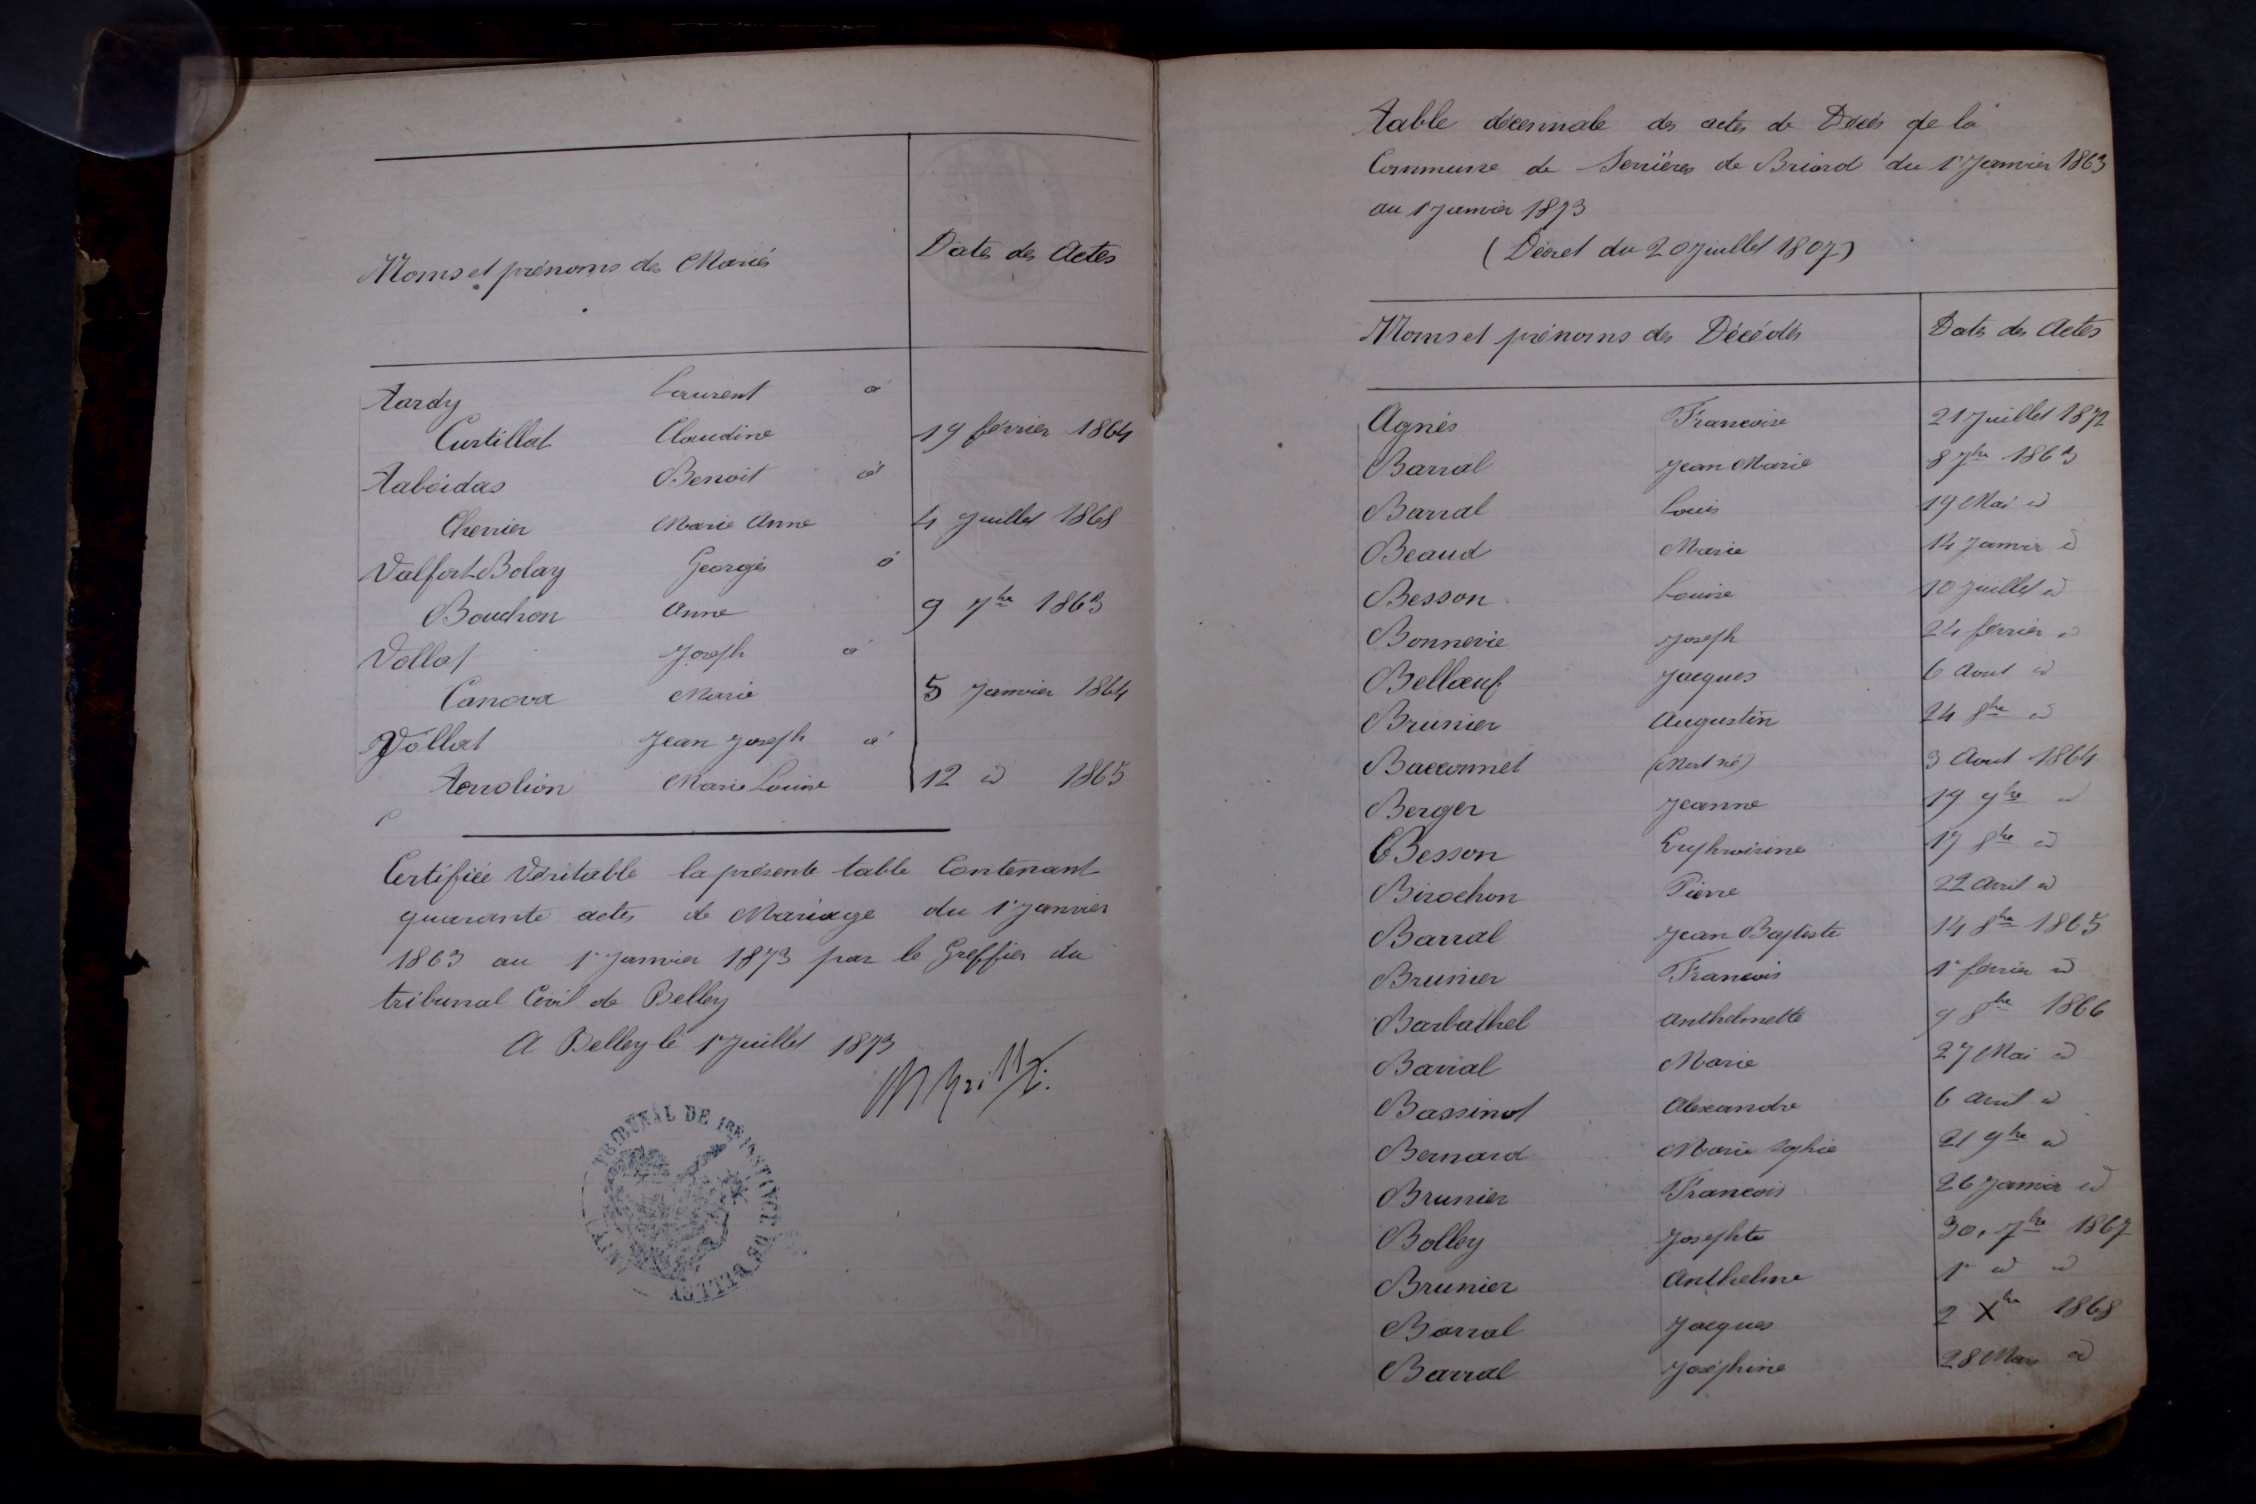 Noms et prénoms des Mariés
Dates des Actes
Tardy Laurent à
Curtillat Claudine 19 février 1864
Taboidas Benoit à
Chenier Marie Anne 4 Juillet 1868
Valfort-Bolay Georges à
Bouchon Anne 9 7bre 1863
Vollat Joseph à
Canova Marie 5 Janvier 1864
Vollat Jean Joseph à
Marie Louise 12 id 1865
Certifiée Véritable la présente table Contenant
quarante actes de Mariage du 1r Janvier
1863 au 1r Janvier 1873 par le Greffier du
tribunal Civil de Belley
A Belley le 1r Juillet 1873
TRIBUNAL DE 1RE INSTANCE DE BELLEY
Table décennale des actes de Décès de la
Commune de Serrières de Briord du 1r Janvier 1863
au 1r Janvier 1873
(Décret du 20 Juillet 1807)
Noms et prénoms des Décédés Dates des Actes
Agnès Francoise 21 Juillet 1872
Barral Jean Marie 8 7bre 1863
Barral Louis 19 Mai id
Beaud Marie 14 Janvier id
Besson Louise 10 Juillet id
Bonnevie Joseph 24 février id
Belloeuf Jacques 6 Aout id
Brunier Augustin 24 8bre id
Bacconnet (Mort né) 3 Aout 1864
Berger Jeanne 19 9bre id
Besson Euphroisine 17 8bre id
Birochon Pierre 22 Avril id
Barral Jean Baptiste 14 8bre 1865
Brunier Francois 1r février id
Barbathel Anthelmette 9 8bre 1866
Barral Marie 27 Mai id
Bassinot Alexandre 6 Avril id
Bernard Marie Sophie 21 9bre id
Brunier Francois 26 Janvier id
Bolley Josephte 30, 7bre 1867
Brunier Anthelme 1r id id
Barral Jacques 2 Xbre 1868
Barral Joséphine 28 Mars id